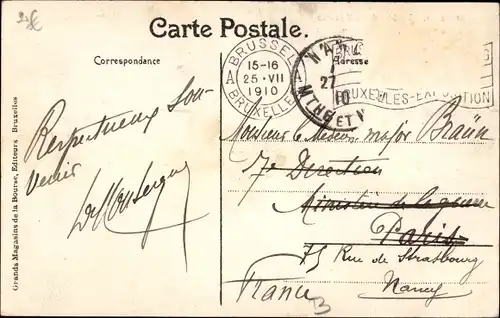 Carte Postale.
Correspondance
Adresse
BRUSSEL
15-16
A
25·VII
1910
BRUXELLES
BRUXELLES-EXPOSITION
27
10
Respectueux sou-
venir
Monsieur le Médecin major Braün
7e Direction
Ministère de la guerre
Paris
75 Rue de Strasbourg
Nancy
France
Grands Magasins de la Bourse, Editeurs. Bruxelles